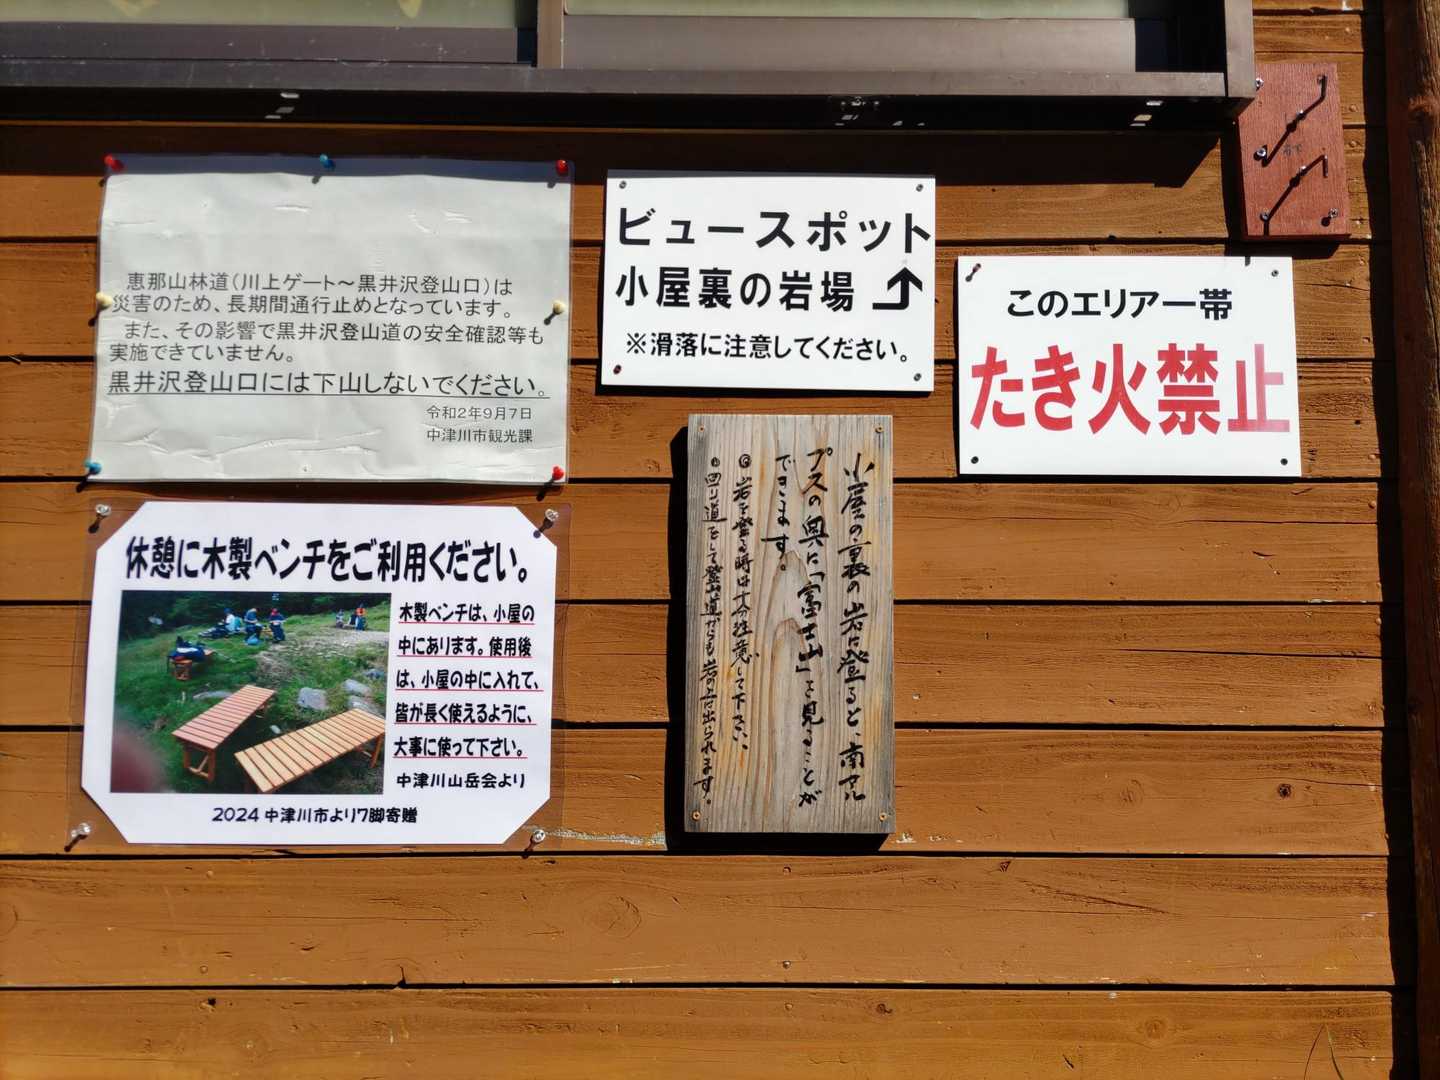 恵那山林道（川上ゲート～黒井沢登山口）は
災害のため、長期間通行止めとなっています。
また、その影響で黒井沢登山道の安全確認等も
実施できていません。
黒井沢登山口には下山しないでください。
令和2年9月7日
中津川市観光課
ビュースポット
小屋裏の岩場
※滑落に注意してください。
このエリア一帯
たき火禁止
休憩に木製ベンチをご利用ください。
木製ベンチは、小屋の
中にあります。使用後
は、小屋の中に入れて、
皆が長く使えるように、
大事に使って下さい。
中津川山岳会より
2024 中津川市より7脚寄贈
小屋の裏の岩に登ると、南アル
プスの奥に「富士山」を見ることが
できます。
◎岩を登る時は十分注意して下さい。
◎回り道をして登山道からも岩の上に出られます。